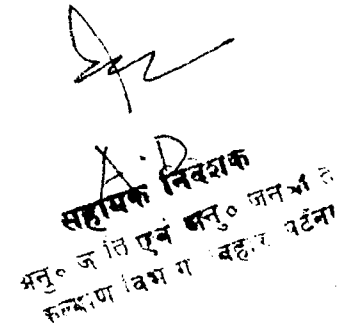 A.D
सहायक निदेशक
अनु० जाति एवं अनु० जनजाति
कल्याण विभाग बिहार पटना